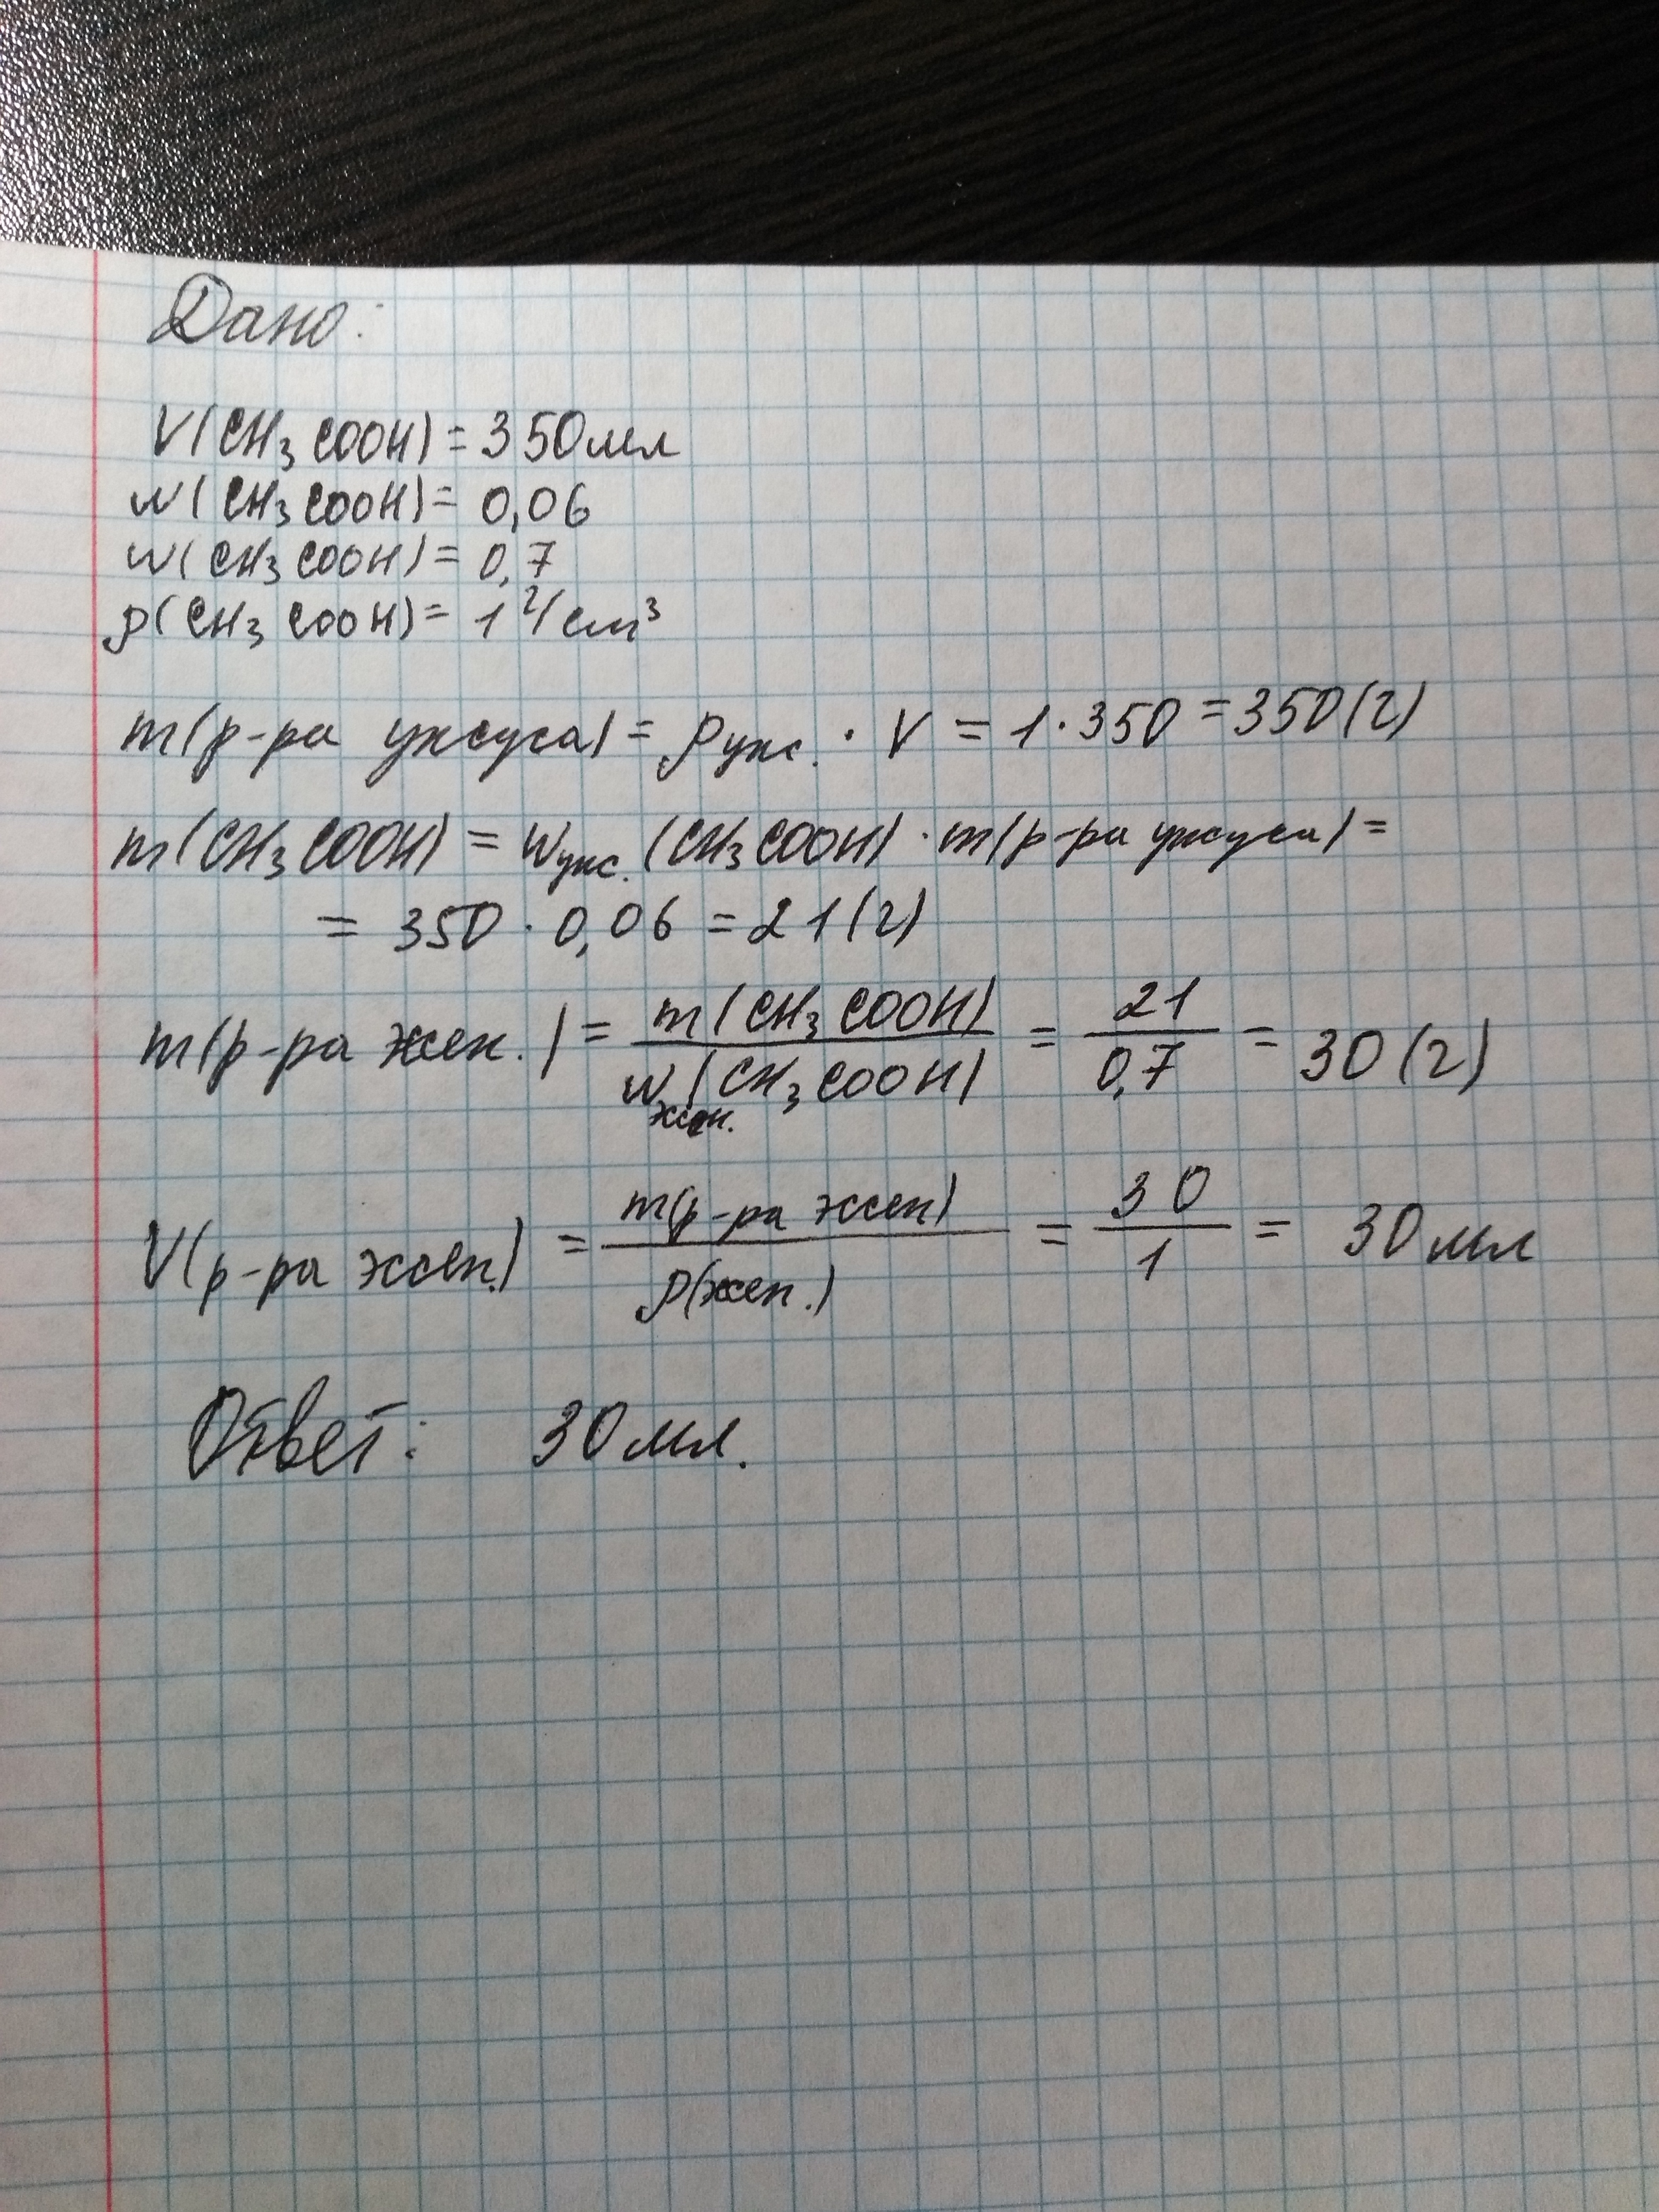 Дано:
V(CH₃COOH) = 350 мл
w(CH₃COOH) = 0,06
w(CH₃COOH) = 0,7
ρ(CH₃COOH) = 1 г/см³
m(р-ра уксуса) = ρукс. · V = 1 · 350 = 350 (г)
m(CH₃COOH) = wукс.(CH₃COOH) · m(р-ра уксуса) =
= 350 · 0,06 = 21 (г)
m(р-ра эссен.) = m(CH₃COOH) / wэссен.(CH₃COOH) = 21 / 0,7 = 30 (г)
V(р-ра эссен.) = m(р-ра эссен) / ρ(эссен.) = 30 / 1 = 30 мл
Ответ: 30 мл.